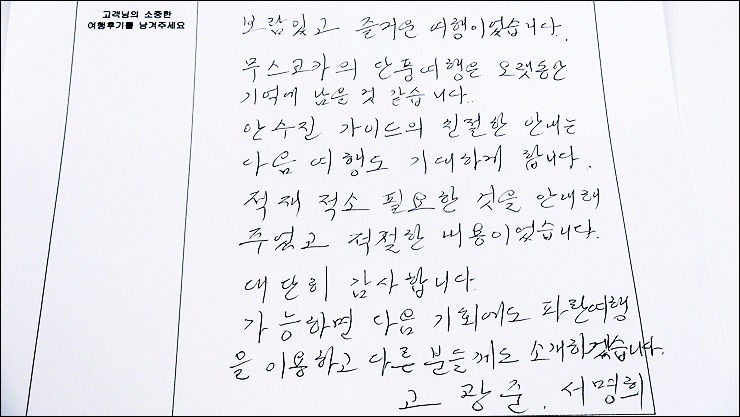 고객님의 소중한
여행후기를 남겨주세요
보람있고 즐거운 여행이었습니다.
무스코카의 단풍여행은 오랫동안
기억에 남을 것 같습니다.
안수진 가이드의 친절한 안내는
다음 여행도 기대하게 합니다.
적재 적소 필요한 것을 안내해
주었고 적절한 비용이었습니다.
대단히 감사합니다.
가능하면 다음 기회에도 파란여행
을 이용하고 다른 분들께도 소개하겠습니다.
고광준. 서명희